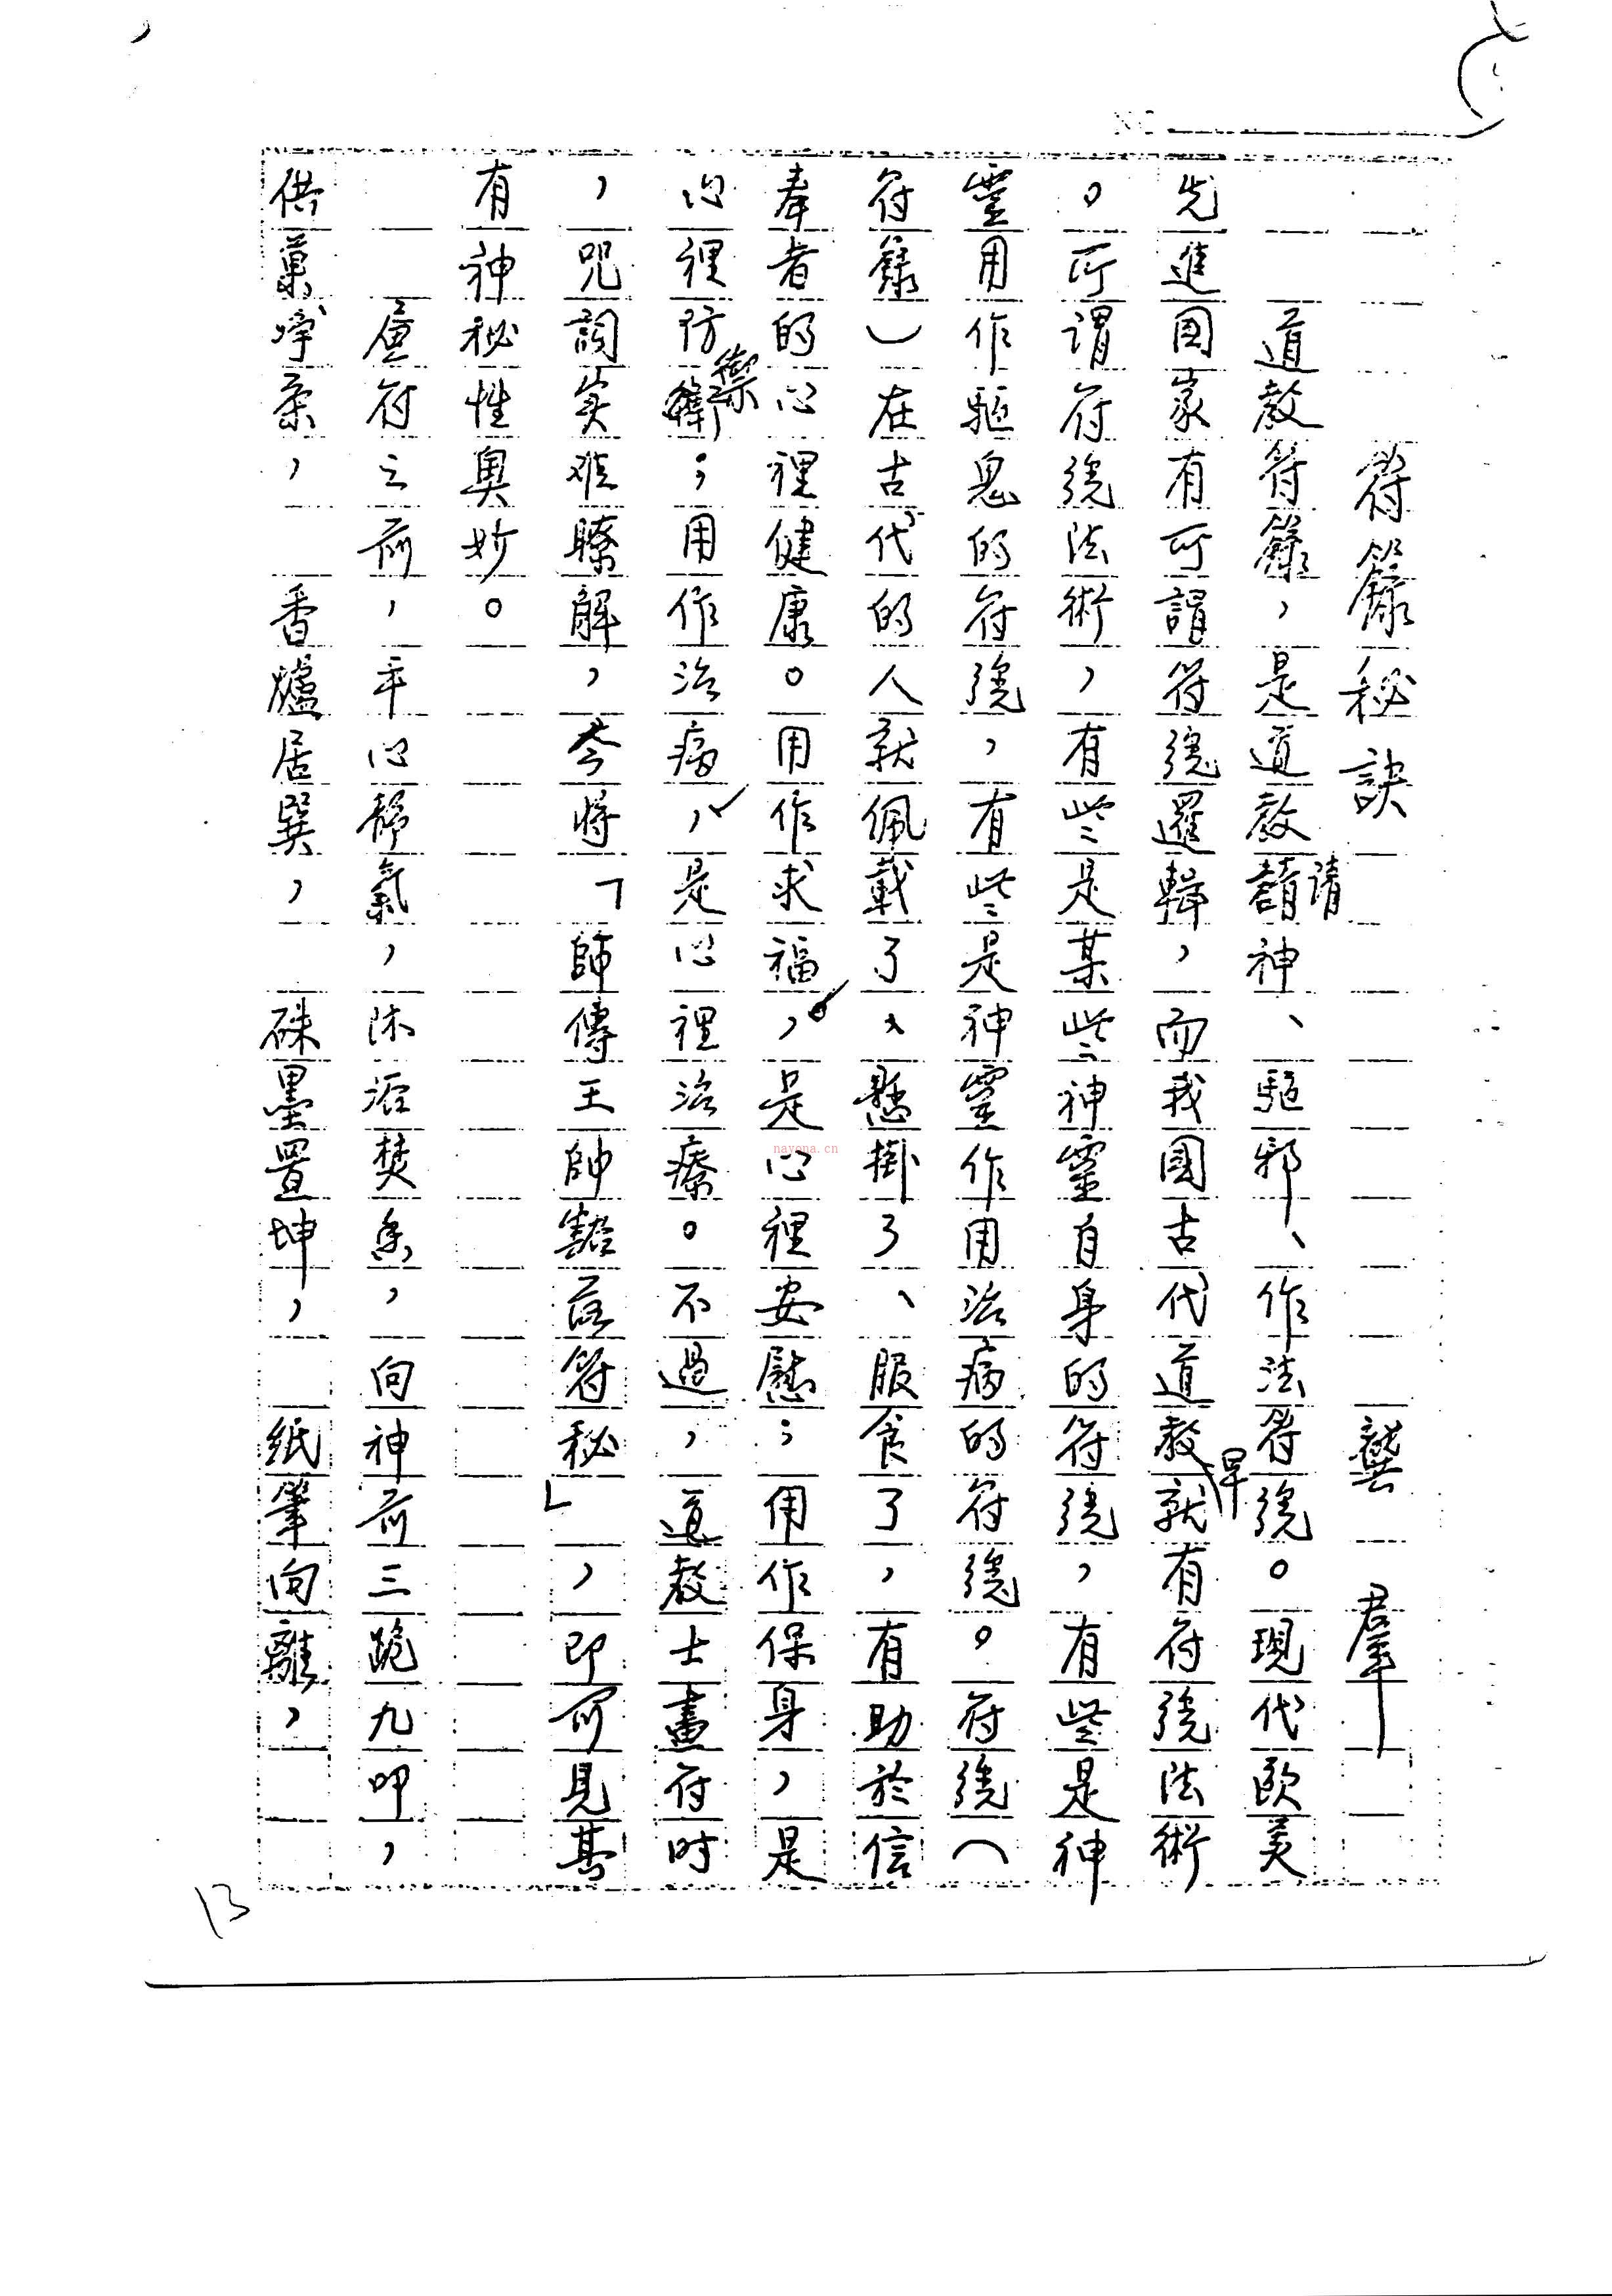 符籙秘訣 龔羣
道教符籙，是道教請神、驅邪、作法符號。現代歐美
先進國家有所謂符號邏輯，而我國古代道教早就有符號法術
。所謂符號法術，有些是某些神靈自身的符號，有些是神
靈用作驅鬼的符號，有些是神靈作用治病的符號。符號（
符籙）在古代的人就佩載了、懸掛了、服食了，有助於信
奉者的心裡健康。用作求福，是心裡安慰；用作保身，是
心裡防禦；用作治病，是心裡治療。不過，道教士畫符时
，咒詞实难瞭解，今将「師傳王帥豁落符秘」，即可見其
有神秘性奧妙。
画符之前，平心靜氣，沐浴焚香，向神前三跪九叩，
供菓凈茶，香爐居巽，硃墨置坤，纸筆向離，
13
nayona.cn